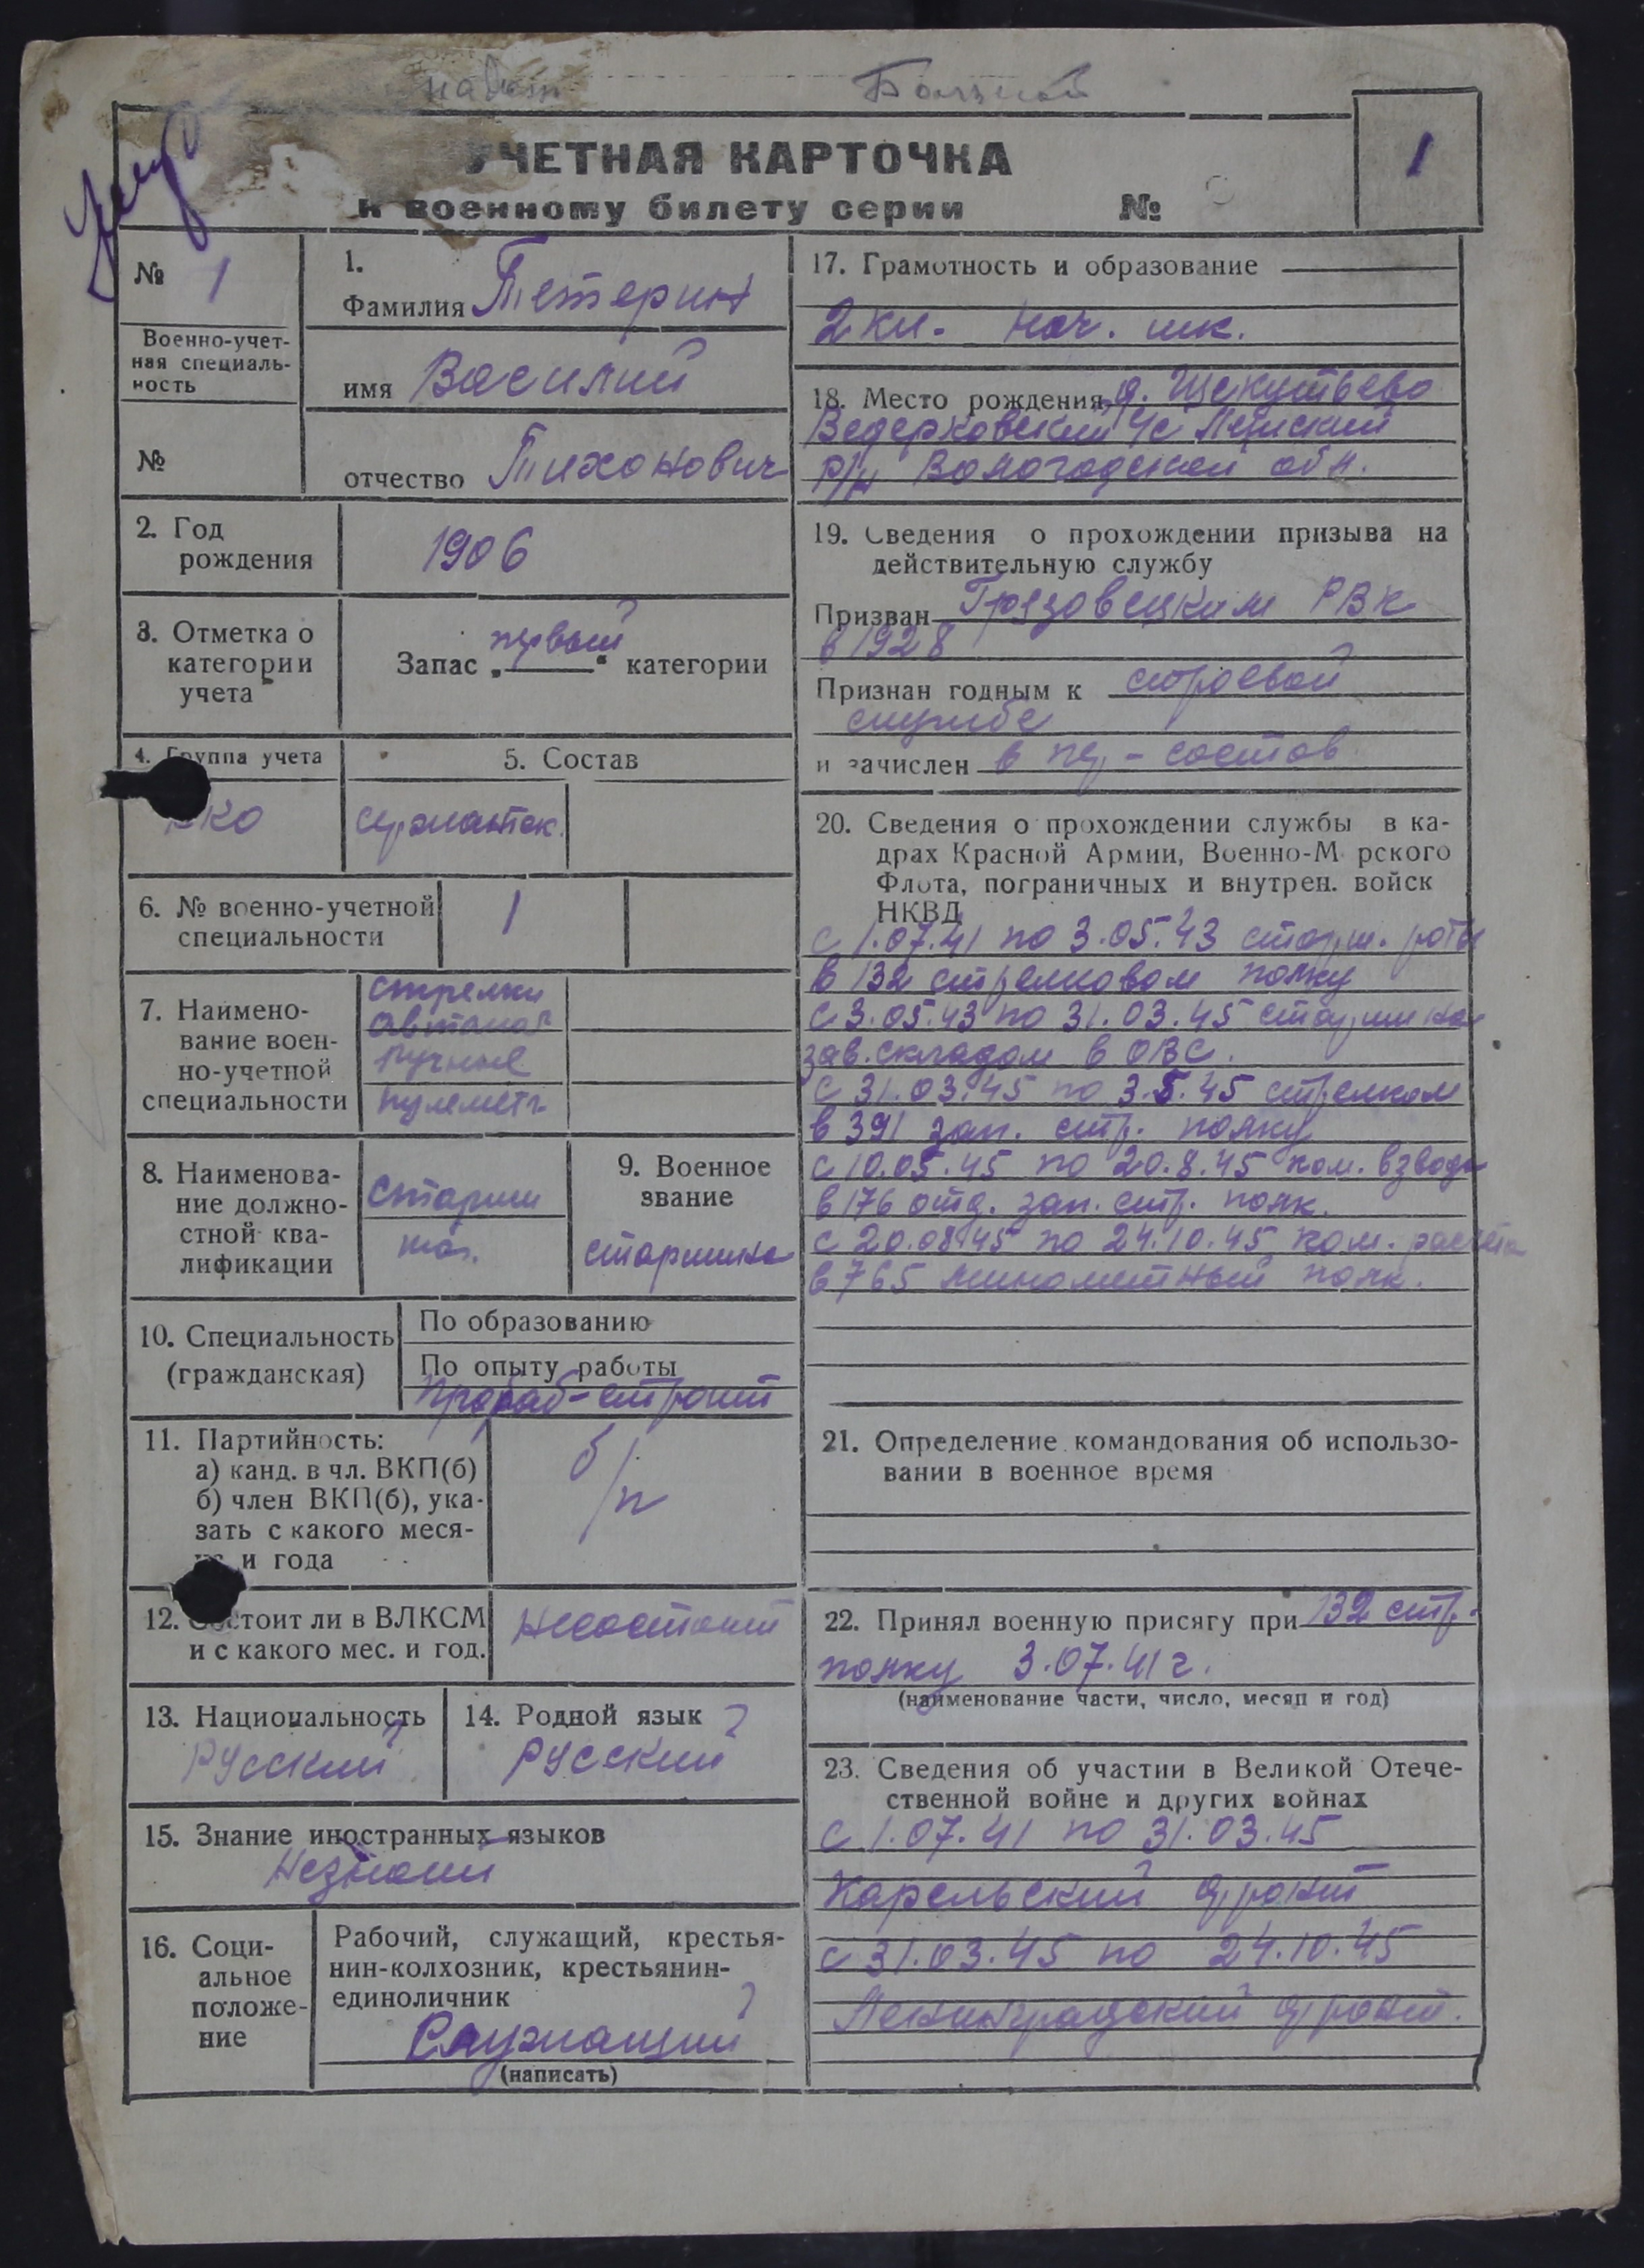 Больной
УЧЕТНАЯ КАРТОЧКА
к военному билету серии №
1
№ 1
Военно-учет-
ная специаль-
ность
№
1.
Фамилия Тетерин
имя Василий
отчество Тихонович
2. Год
рождения
1906
3. Отметка о
категории
учета
Запас „первой“ категории
4. Группа учета
РКО
5. Состав
сержантск.
6. № военно-учетной
специальности
1
7. Наимено-
вание воен-
но-учетной
специальности
Стрелки
автомат
ручные
пулемет
8. Наименова-
ние должно-
стной ква-
лификации
Старши
на.
9. Военное
звание
старшина
10. Специальность
(гражданская)
По образованию
По опыту работы
прораб-строит
11. Партийность:
а) канд. в чл. ВКП(б)
б) член ВКП(б), ука-
зать с какого меся-
ца и года
б/п
12. Состоит ли в ВЛКСМ
и с какого мес. и год.
Несостоит
13. Национальность
Русский
14. Родной язык
русский
15. Знание иностранных языков
Незнает
16. Соци-
альное
положе-
ние
Рабочий, служащий, крестья-
нин-колхозник, крестьянин-
единоличник
Служащий
(написать)
17. Грамотность и образование
2 кл. нач. шк.
18. Место рождения д. Щекутьево
Ведерковский с/с Лежский
р/н Вологодской обл.
19. Сведения о прохождении призыва на
действительную службу
Призван Грязовецким РВК
в 1928
Признан годным к строевой
службе
и зачислен в пер-состав
20. Сведения о прохождении службы в ка-
драх Красной Армии, Военно-М рского
Флота, пограничных и внутрен. войск
НКВД
с 1.07.41 по 3.05.43 старш. роты
в 132 стрелковом полку
с 3.05.43 по 31.03.45 старшина
зав. складом в ОВС.
с 31.03.45 по 3.5.45 стрелком
в 391 зап. стр. полку
с 10.05.45 по 20.8.45 ком. взвода
в 176 отд. зап. стр. полк.
с 20.08.45 по 24.10.45 ком. расчета
в 765 минометный полк.
21. Определение командования об использо-
вании в военное время
22. Принял военную присягу при 132 стр.
полку 3.07.41 г.
(наименование части, число, месяц и год)
23. Сведения об участии в Великой Отече-
ственной войне и других войнах
с 1.07.41 по 31.03.45
Карельский фронт
с 31.03.45 по 24.10.45
Ленинградский фронт.